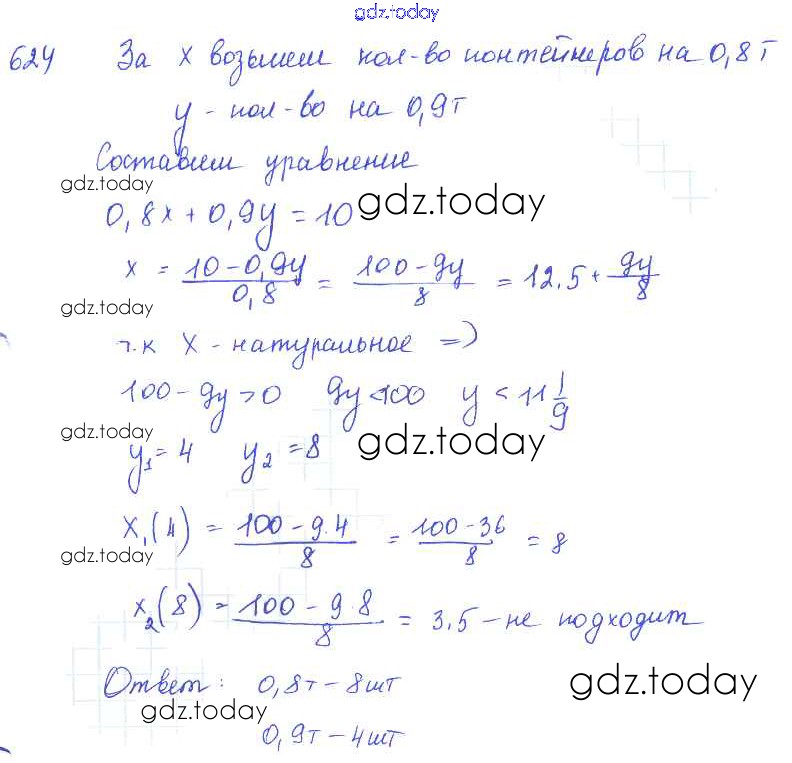 gdz.today
624 За x возьмем кол-во контейнеров на 0,8т
y - кол-во на 0,9т
Составим уравнение
gdz.today
0,8x + 0,9y = 10 gdz.today
x = (10-0,9y)/0,8 = (100-9y)/8 = 12,5 + 9y/8
gdz.today
т.к x - натуральное =>
100-9y>0 9y<100 y < 11 1/9
gdz.today gdz.today
y₁=4 y₂=8
x₁(4) = (100-9·4)/8 = (100-36)/8 = 8
gdz.today
x₂(8) = (100-9·8)/8 = 3,5 - не подходит
Ответ: 0,8т - 8шт
gdz.today gdz.today
0,9т - 4шт